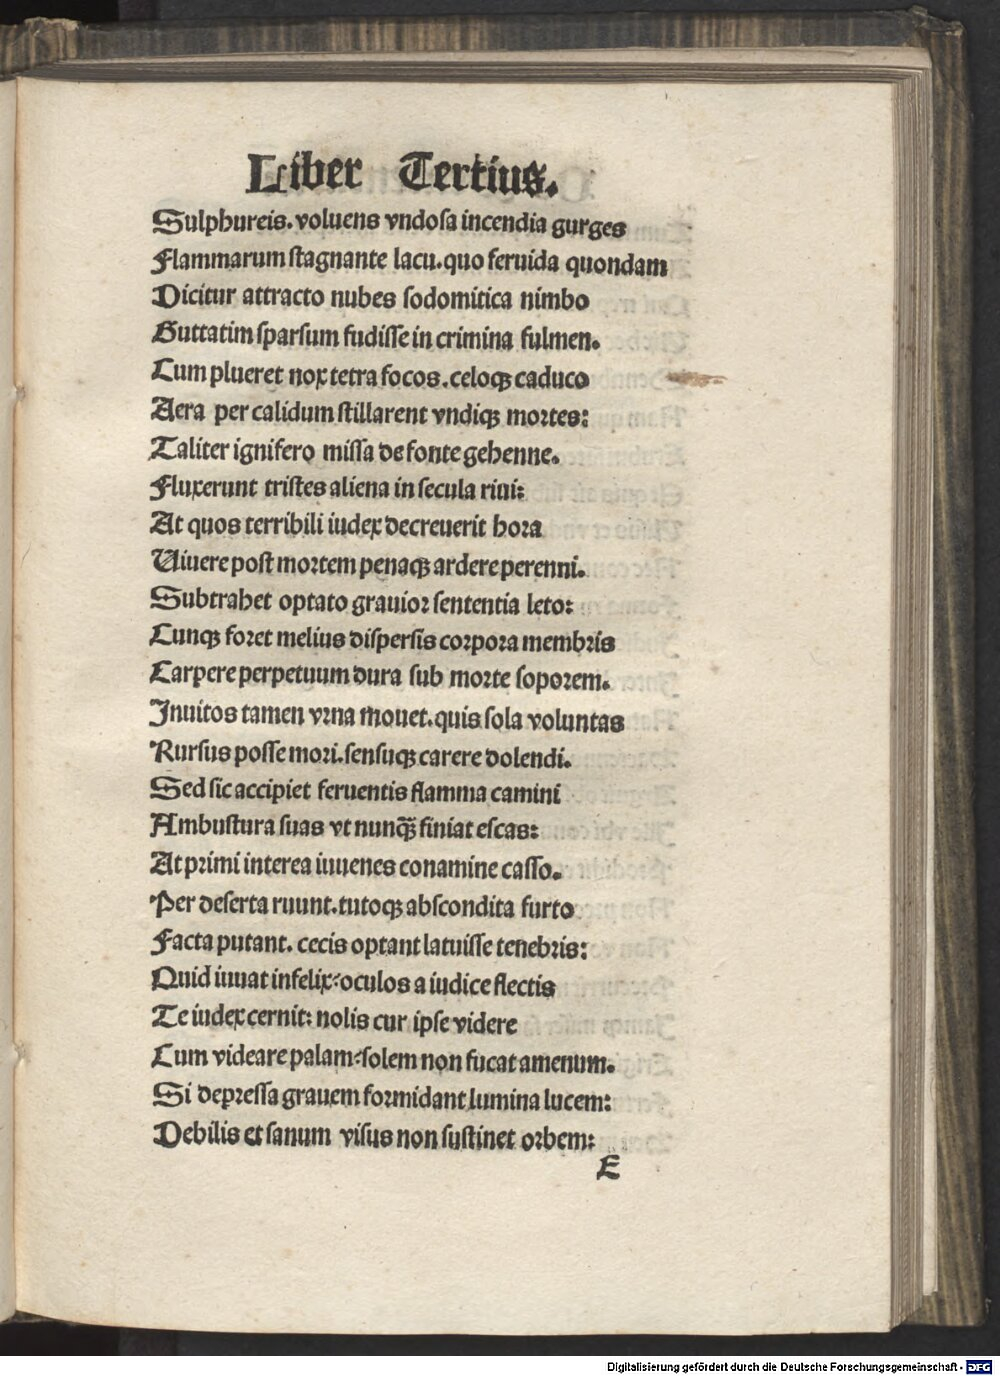 Liber Tertius.
Sulphureis. voluens vndosa incendia gurges
Flammarum stagnante lacu. quo feruida quondam
Dicitur attracto nubes sodomitica nimbo
Guttatim sparsum fudisse in crimina fulmen.
Cum plueret nox tetra focos. celoqꝫ caduco
Aera per calidum stillarent vndiqꝫ mortes:
Taliter ignifero missa de fonte gehenne.
Fluxerunt tristes aliena in secula riui:
At quos terribili iudex decreuerit hora
Uiuere post mortem penaqꝫ ardere perenni.
Subtrahet optato grauior sententia leto:
Cunqꝫ foret melius dispersis corpora membris
Carpere perpetuum dura sub morte soporem.
Inuitos tamen vrna mouet. quis sola voluntas
Rursus posse mori. sensuqꝫ carere dolendi.
Sed sic accipiet feruentis flamma camini
Ambustura suas vt nunq̃ꝫ finiat escas:
At primi interea iuuenes conamine casso.
Per deserta ruunt. tutoqꝫ abscondita furto
Facta putant. cecis optant latuisse tenebris:
Quid iuuat infelix: oculos a iudice flectis
Te iudex cernit: nolis cur ipse videre
Cum videare palam: solem non fucat amenum.
Si depressa grauem formidant lumina lucem:
Debilis et sanum visus non sustinet orbem:
E
Digitalisierung gefördert durch die Deutsche Forschungsgemeinschaft - DFG